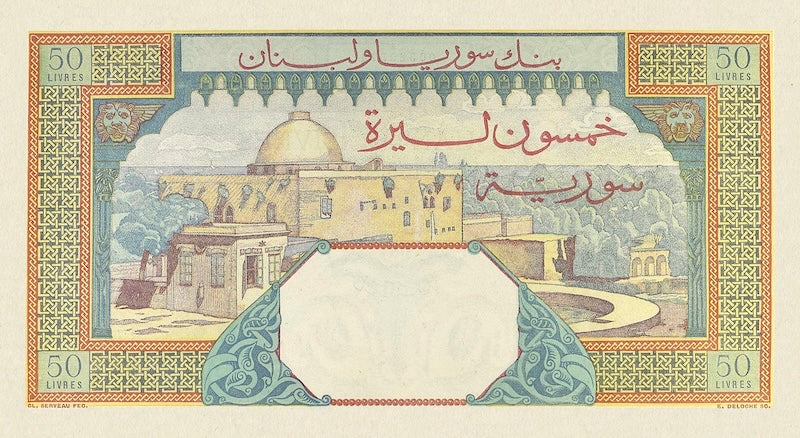 بنك سوريا ولبنان
50
LIVRES
50
LIVRES
خمسون ليرة
سوريّة
50
LIVRES
50
LIVRES
CL. SERVEAU FEC.
E. DELOCHE SC.